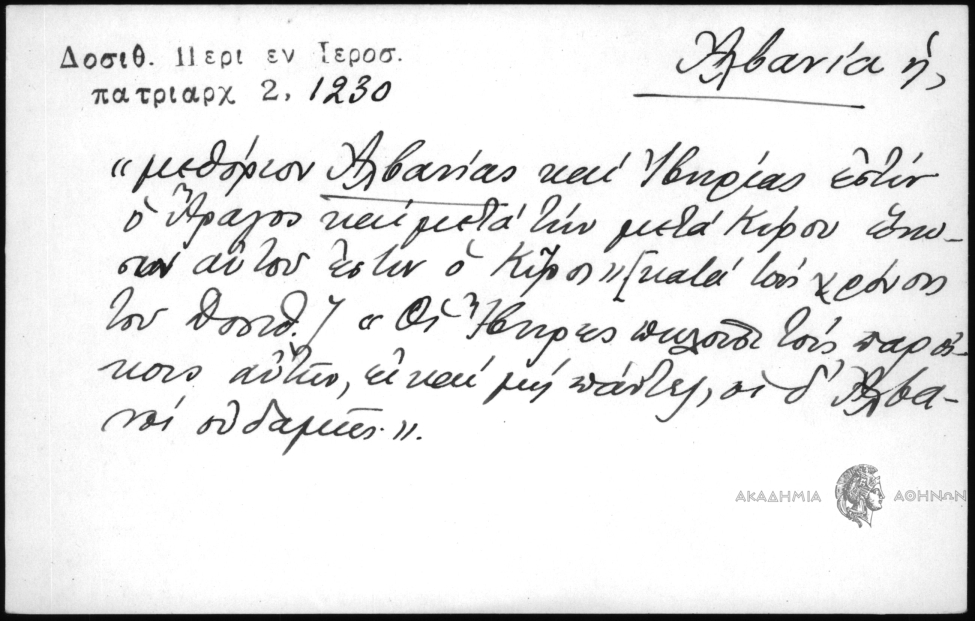 Δοσιθ. Περι εν Ιεροσ.
πατριαρχ 2, 1230
Ἀλβανία ἡ,
«μεθόριον Ἀλβανίας καί Ἰβηρίας ἐστίν
ὁ Ἄραγος καί μετά τήν μετά Κύρου ἕνω-
σιν αὐτοῦ ἐστιν ὁ Κῦρος» [κατά τούς χρόνους
τοῦ Δοσιθ.] «Οἱ Ἴβηρες τοῖς παροί-
κοις αὐτῶν, εἰ καί μή πάντες, οἱ δ' Ἀλβα-
νοί οὐδαμῶς».
ΑΚΑΔΗΜΙΑ ΑΘΗΝΩΝ